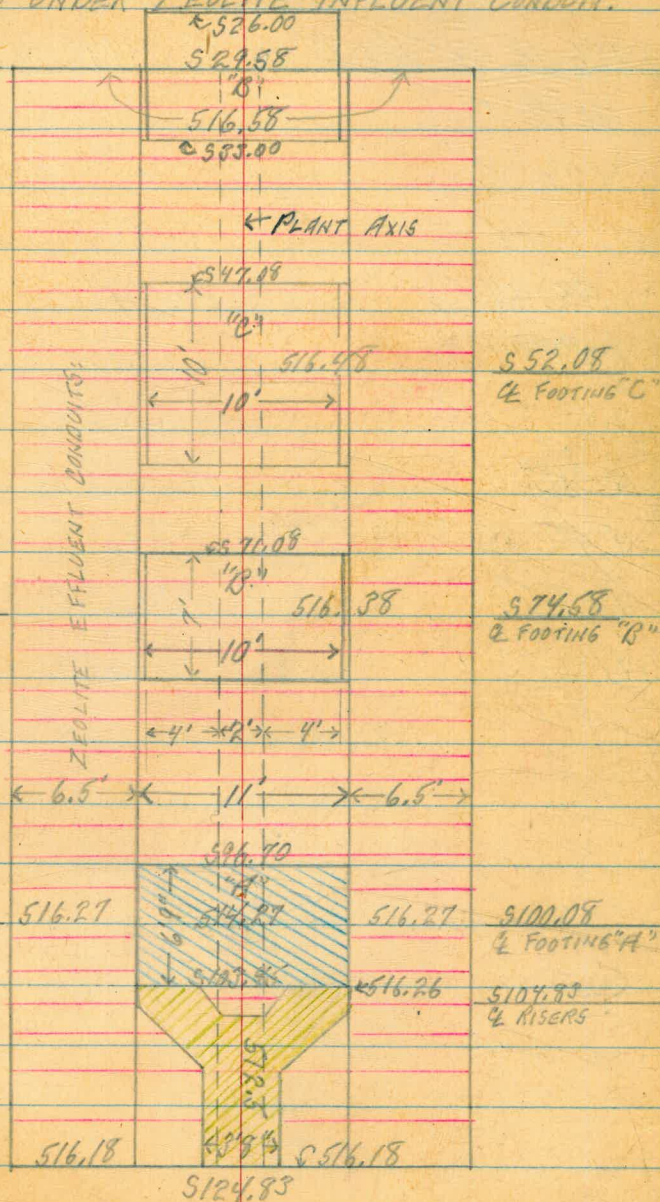 UNDER ZEOLITE INFLUENT CONDUIT.
S26.00
S29.58
"B"
516.58
S33.00
← PLANT AXIS
S47.08
"C"
10'
516.48
10'
S52.08
℄ FOOTING "C"
ZEOLITE EFFLUENT CONDUITS:
S71.08
"B"
7'
516.38
10'
S74.58
℄ FOOTING "B"
4' 2' 4'
6.5' 11' 6.5'
S96.70
"A"
6'9"
516.27
514.27
516.27
S100.08
℄ FOOTING "A"
516.26
S104.83
℄ RISERS
3'8"
516.18
516.18
S124.83